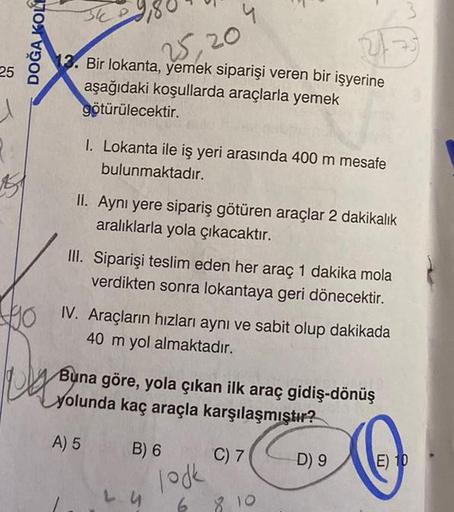 9,80
4
3
25,20
21-75
25
DOĞA KOL
13. Bir lokanta, yemek siparişi veren bir işyerine
aşağıdaki koşullarda araçlarla yemek
götürülecektir.
I. Lokanta ile iş yeri arasında 400 m mesafe
bulunmaktadır.
II. Aynı yere sipariş götüren araçlar 2 dakikalık
aralıklarla yola çıkacaktır.
III. Siparişi teslim eden her araç 1 dakika mola
verdikten sonra lokantaya geri dönecektir.
IV. Araçların hızları aynı ve sabit olup dakikada
40 m yol almaktadır.
Buna göre, yola çıkan ilk araç gidiş-dönüş
yolunda kaç araçla karşılaşmıştır?
A) 5 B) 6 C) 7 D) 9 E) 10
10dk
2 4 6 8 10